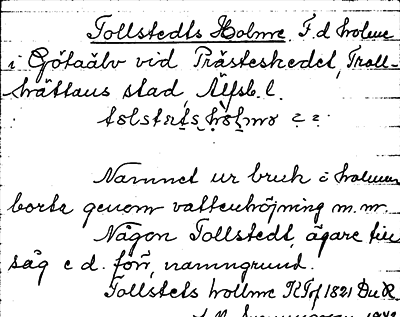 Tollstedts Holme. F.d holme
i Götaälv vid Prästeskedet, Troll-
hättans stad, Älfsb. l.
Namnet ur bruk o holmen
borta genom vattenhöjning m.m.
Någon Tollstedt, ägare till
såg e d. förr, namngrund.
Tollstets hollme RTrf 1821 Du R.